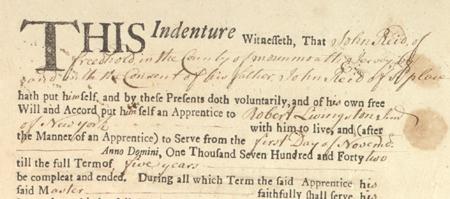 THIS Indenture Witnesseth, That John Reid of
freehold in the County of monmouth Jersey by
and with the Consent of his father John Reid of Sd place
hath put himself, and by these Presents doth voluntarily, and of his own free
Will and Accord put himself an Apprentice to Robert Livingston Jund
of New york with him to live, and (after
the Manner of an Apprentice) to Serve from the first Day of Novemr.
Anno Domini, One Thousand Seven Hundred and Forty two
till the full Term of five years
be compleat and ended. During all which Term the said Apprentice his
said Master faithfully shall serve his